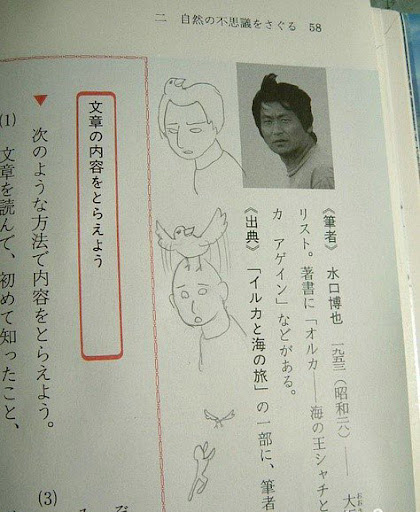 二 自然の不思議をさぐる 58
《筆者》 水口博也 一九五三(昭和二八)―― 大
リスト。著書に「オルカ――海の王シャチと
カ アゲイン」などがある。
《出典》 「イルカと海の旅」の一部に、筆者
文章の内容をとらえよう
▼ 次のような方法で内容をとらえよう。
(1) 文章を読んで、初めて知ったこと、
(3)